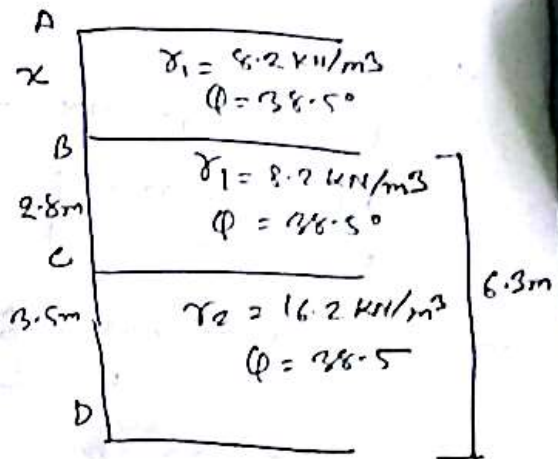 A
x
γ₁ = 8.2 kN/m3
φ = 38.5°
B
2.8m
γ₁ = 8.2 kN/m3
φ = 38.5°
C
3.5m
γ₂ = 16.2 kN/m3
φ = 38.5
6.3m
D